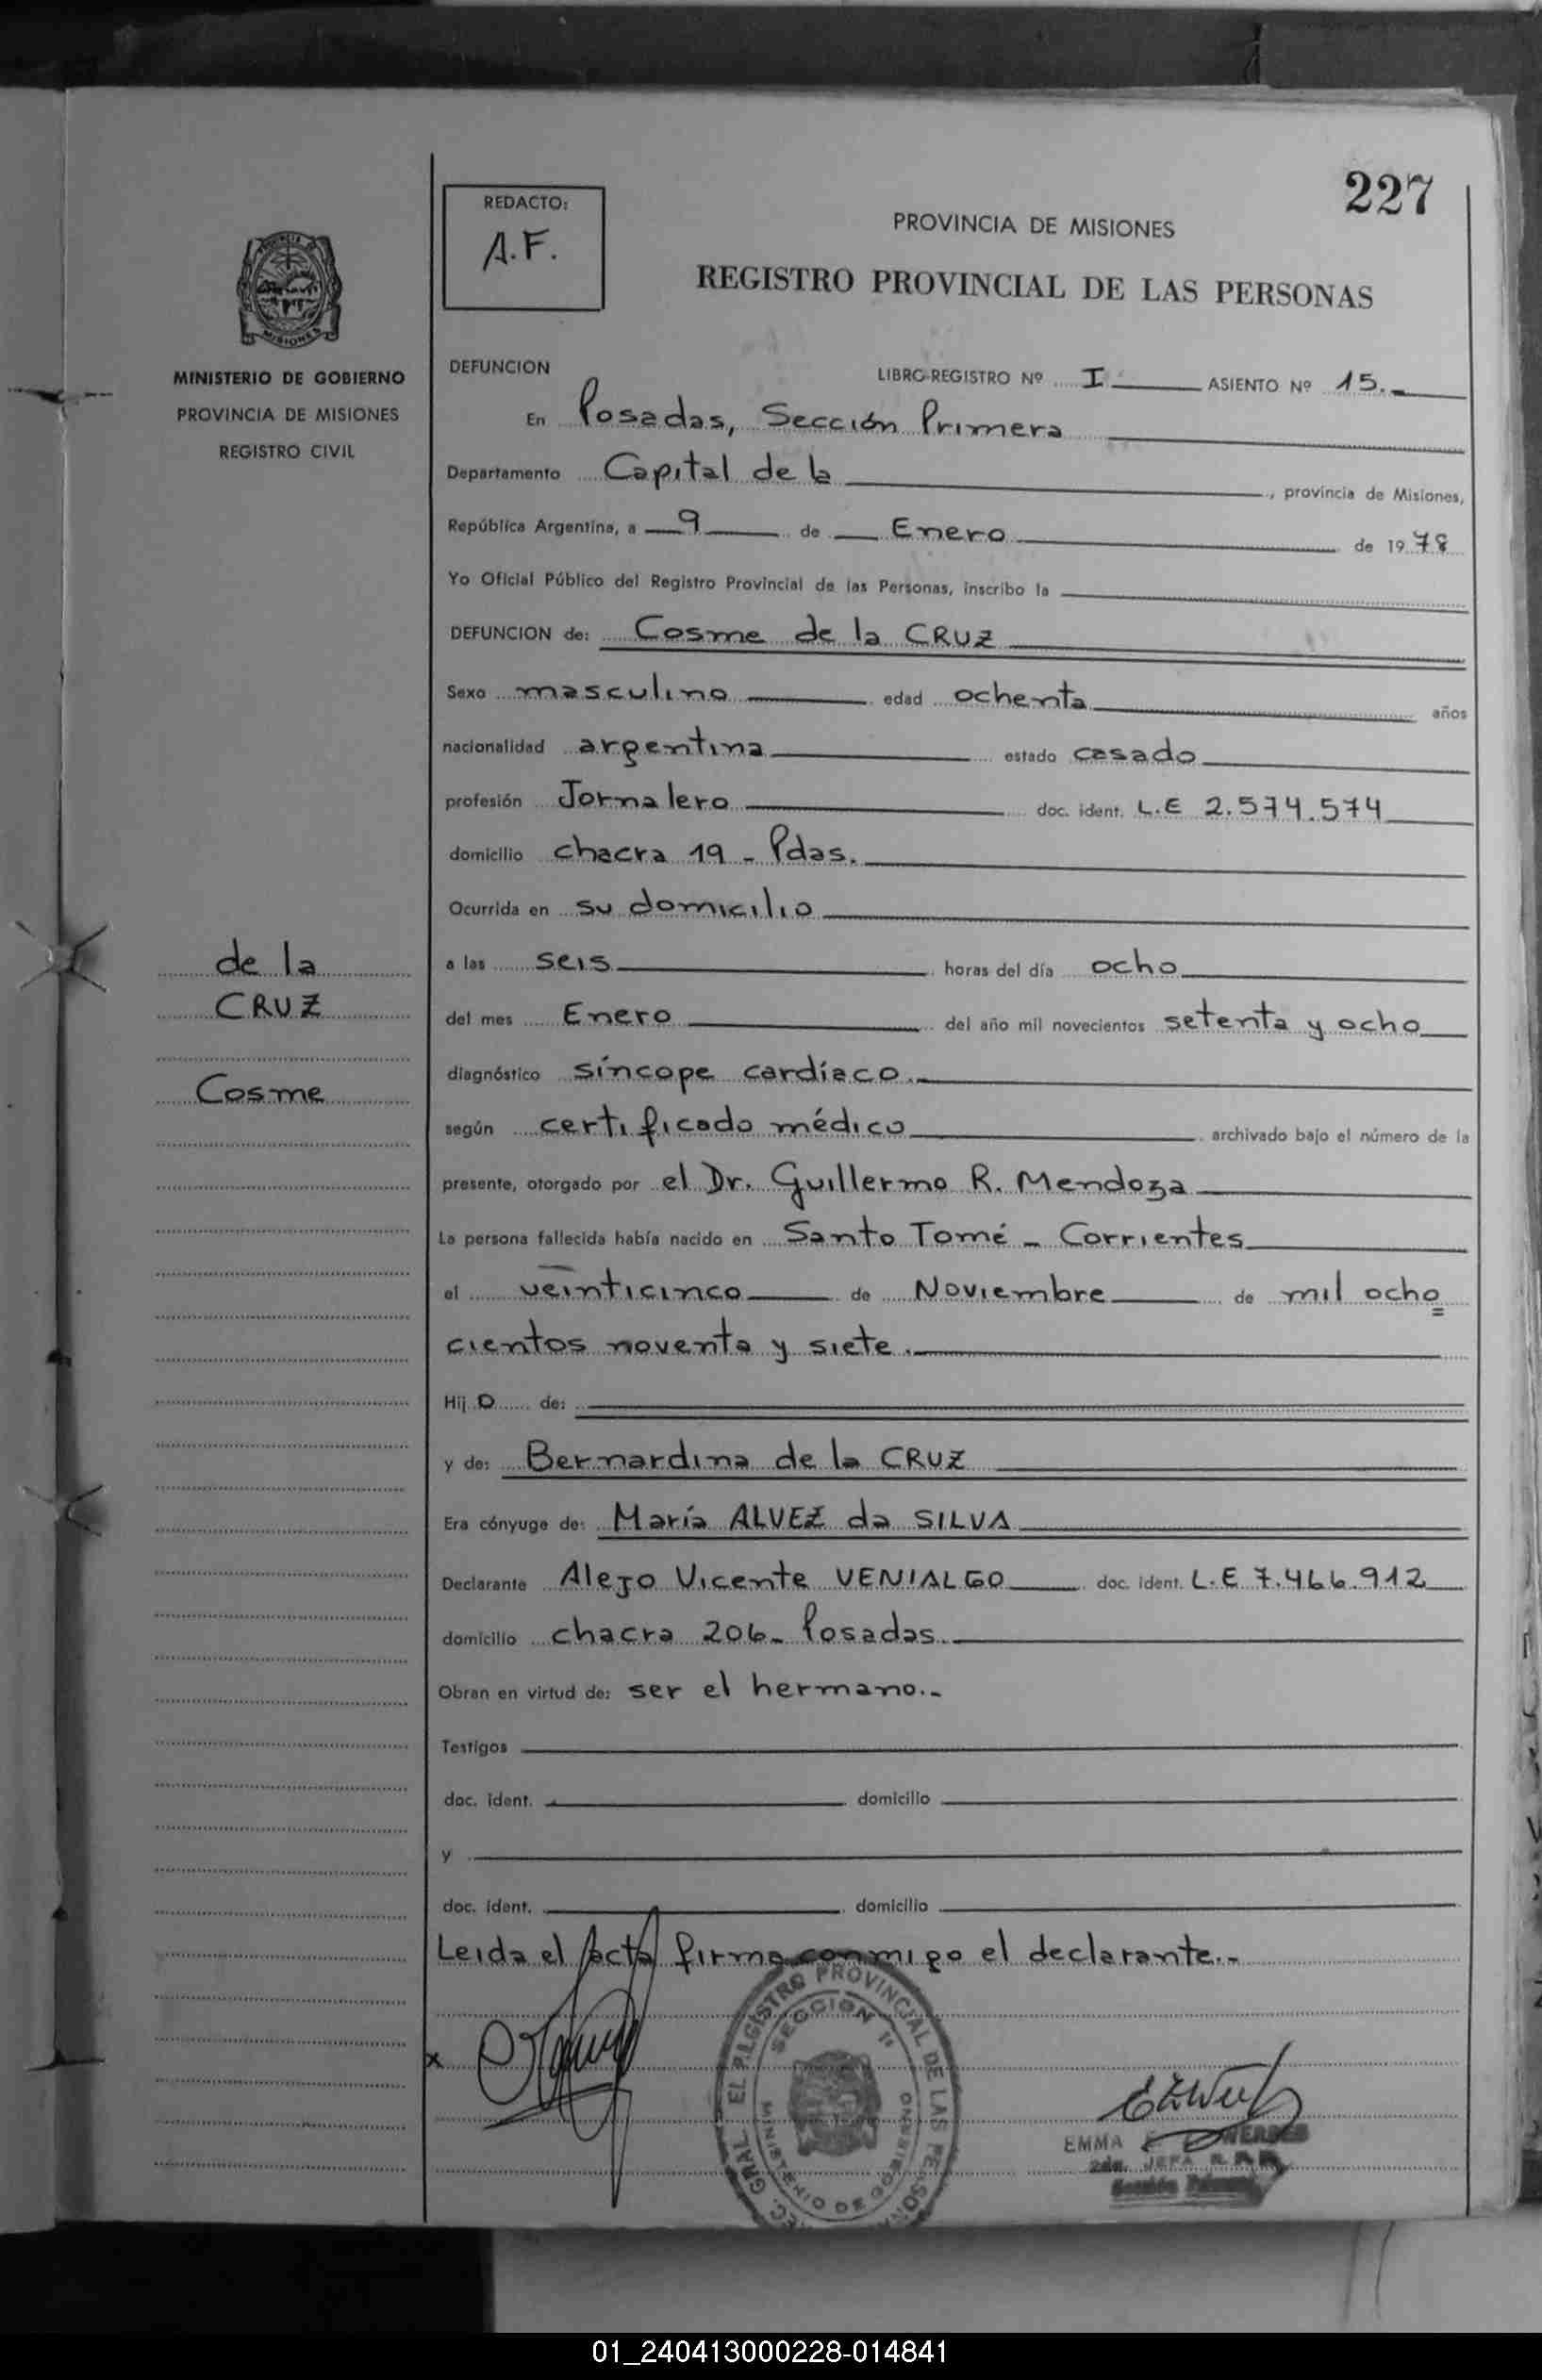 227
REDACTO:
A.F.
PROVINCIA DE MISIONES
REGISTRO PROVINCIAL DE LAS PERSONAS
PROVINCIA DE
MISIONES
MINISTERIO DE GOBIERNO
PROVINCIA DE MISIONES
REGISTRO CIVIL
DEFUNCION LIBRO-REGISTRO Nº I ASIENTO Nº 15.-
En Posadas, Sección Primera
Departamento Capital de la , provincia de Misiones,
República Argentina, a 9 de Enero de 1978
Yo Oficial Público del Registro Provincial de las Personas, inscribo la
DEFUNCION de: Cosme de la CRUZ
Sexo masculino edad ochenta años
nacionalidad argentina estado casado
profesión Jornalero doc. ident. L.E 2.574.574
domicilio chacra 19 - Pdas.
Ocurrida en su domicilio
a las seis horas del día ocho
del mes Enero del año mil novecientos setenta y ocho
diagnóstico síncope cardíaco.-
según certificado médico archivado bajo el número de la
presente, otorgado por el Dr. Guillermo R. Mendoza
La persona fallecida había nacido en Santo Tomé - Corrientes
el veinticinco de Noviembre de mil ocho=
cientos noventa y siete.
Hij o de:
y de: Bernardina de la CRUZ
Era cónyuge de: María ALVEZ da SILVA
Declarante Alejo Vicente VENIALGO doc. ident. L.E 7.466.912
domicilio chacra 206- Posadas.
Obran en virtud de: ser el hermano.-
Testigos
doc. ident. domicilio
y
doc. ident. domicilio
Leida el acta firma conmigo el declarante.-
de la
CRUZ
Cosme
x
GRAL. EL REGISTRO PROVINCIAL DE LAS PERSONAS
SECCION 1ª
MINISTERIO DE GOBIERNO
EMMA
2da. JEFA R.
Sección
01_240413000228-014841